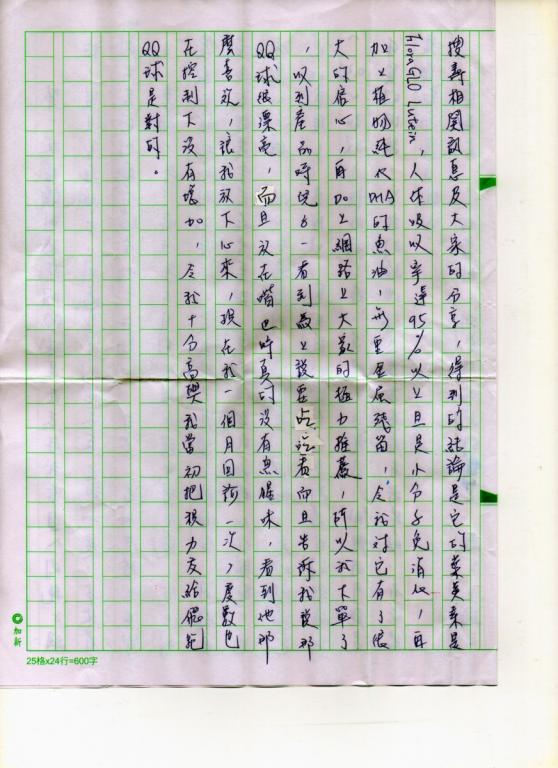 搜尋相關訊息及大家的分享，得到的結論是它的葉黃素是
FloraGLO Lutein，人体吸收率達95%以上且是小分子免消化，再
加上植物純化DHA的魚油，無重金屬殘留，令我對它有了很
大的信心，再加上網路上大家的極力推薦，所以我下單了
，收到產品時兒子一看到馬上說要吃吃看而且告訴我說那
QQ球很漂亮，而且放在嘴巴時真的沒有魚腥味，看到他那
麼喜歡，讓我放下心來，現在我一個月回診一次，度數也
在控制下沒有增加，令我十分高興我當初把視力交給
QQ球是對的。
加新
25格x24行=600字